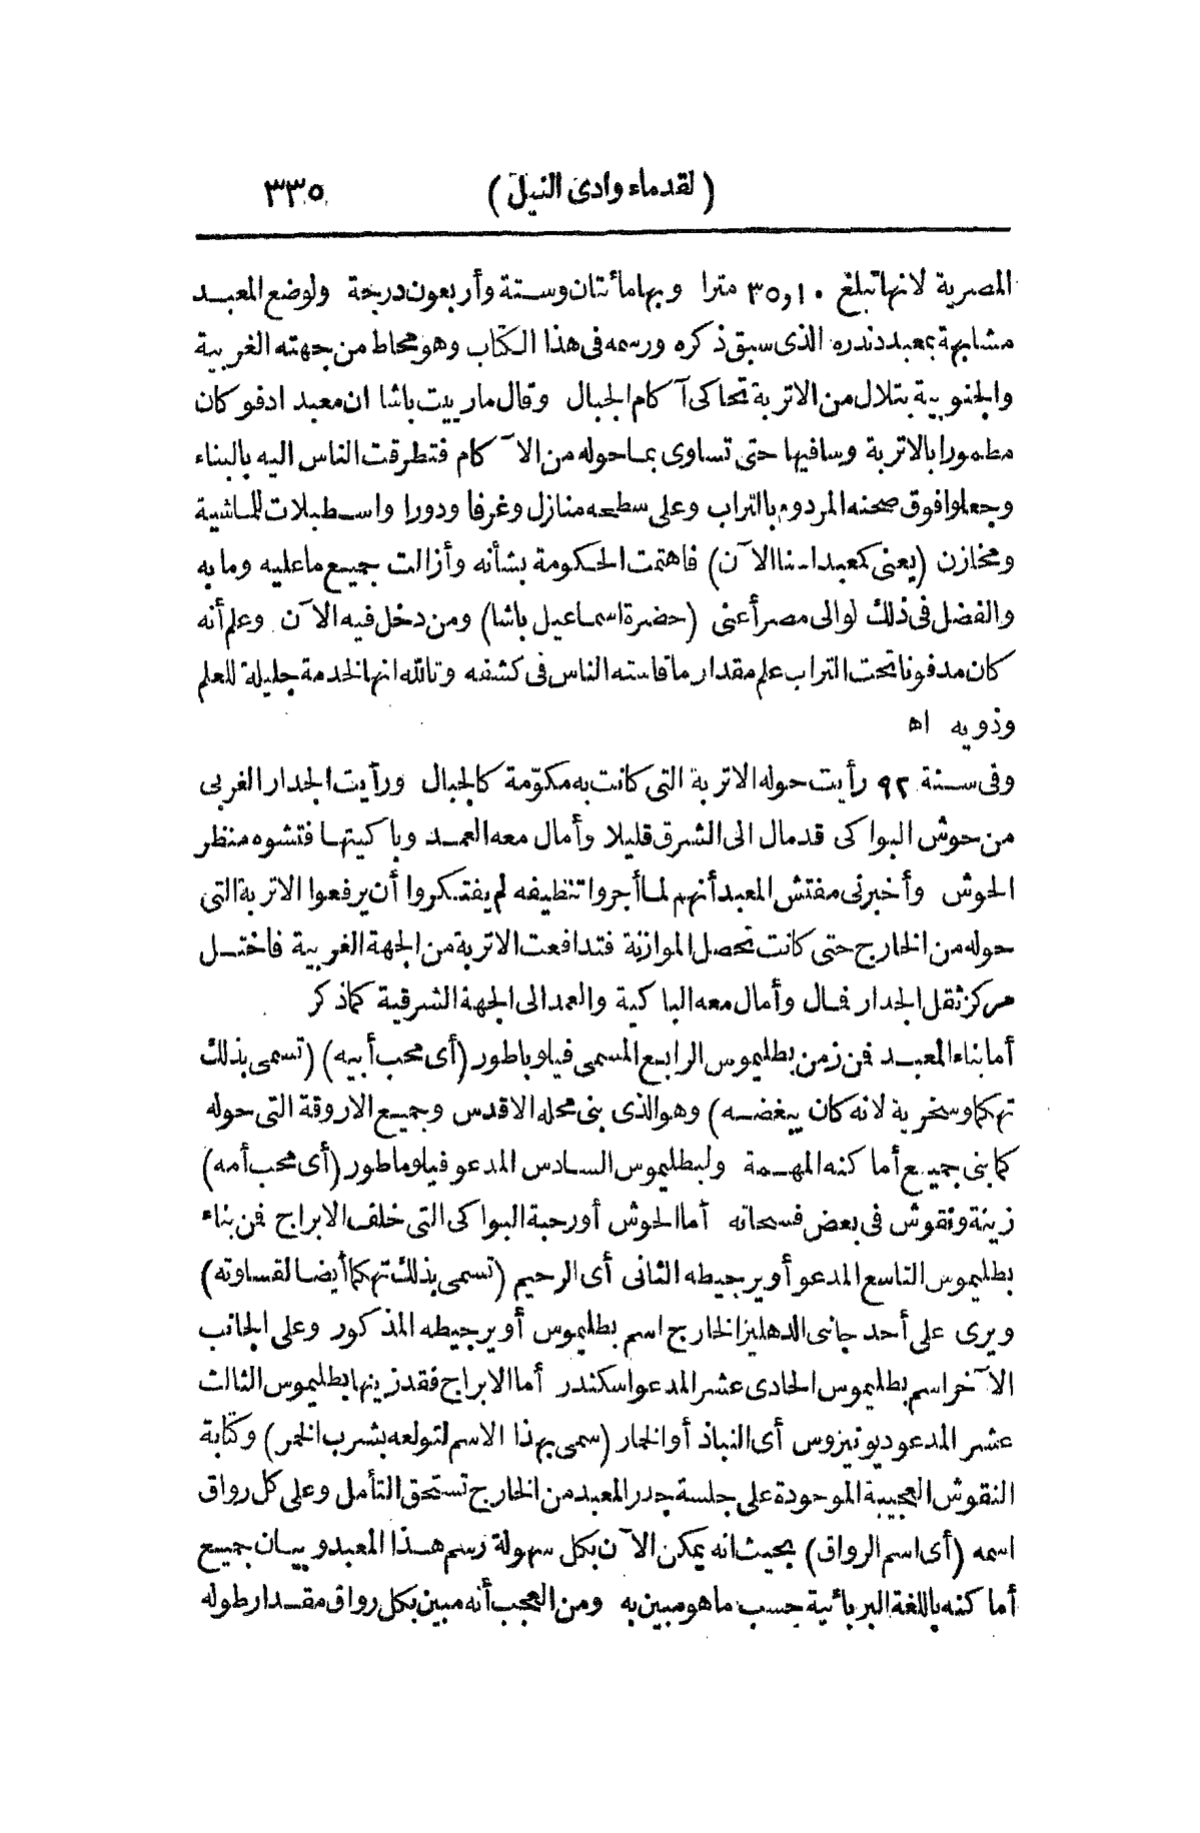 (لقدماء وادى النيل) ٣٣٥
المصرية لانها تبلغ ٣٥,١٠ مترا وبها مائتان وستة وأربعون درجة ولوضع المعبد
مشابهة بمعبد دندره الذى سبق ذكره ورسمه فى هذا الكتاب وهو محاط من جهته الغربية
والجنوبية بتلال من الاتربة تحاكى آكام الجبال وقال مارييت باشا ان معبد ادفو كان
مطمورا بالاتربة وسافيها حتى تساوى بما حوله من الآكام فتطرقت الناس اليه بالبناء
وجعلوا فوق صحنه المردوم بالتراب وعلى سطحه منازل وغرفا ودورا واسطبلات للماشية
ومخازن (يعنى كمعبد اسنا الآن) فاهتمت الحكومة بشأنه وأزالت جميع ما عليه وما به
والفضل فى ذلك لوالى مصر أعنى (حضرة اسماعيل باشا) ومن دخل فيه الآن وعلم أنه
كان مدفونا تحت التراب علم مقدار ما قاسته الناس فى كشفه وتالله انها لخدمة جليلة للعلم
وذويه اه
وفى سنة ٩٢ رأيت حوله الاتربة التى كانت به مكوّمة كالجبال ورأيت الجدار الغربى
من حوش البواكى قد مال الى الشرق قليلا وأمال معه العمد وباكيتها فتشوه منظر
الحوش وأخبرنى مفتش المعبد أنهم لما أجروا تنظيفه لم يفتكروا أن يرفعوا الاتربة التى
حوله من الخارج حتى كانت تحصل الموازنة فتدافعت الاتربة من الجهة الغربية فاختل
مركز ثقل الجدار فمال وأمال معه الباكية والعمد الى الجهة الشرقية كما ذكر
أما بناء المعبد فمن زمن بطليموس الرابع المسمى فيلوباطور (أى محب أبيه) (تسمى بذلك
تهكما وسخرية لانه كان يبغضه) وهو الذى بنى محله الاقدس وجميع الاروقة التى حوله
كما بنى جميع أماكنه المهمة ولبطليموس السادس المدعو فيلوماطور (أى محب أمه)
زينة ونقوش فى بعض فسحاته أما الحوش أو رحبة البواكى التى خلف الابراج فمن بناء
بطليموس التاسع المدعو أويرجيطه الثانى أى الرحيم (تسمى بذلك تهكما أيضا لقساوته)
ويرى على أحد جانبى الدهليز الخارج اسم بطليموس أويرجيطه المذكور وعلى الجانب
الآخر اسم بطليموس الحادى عشر المدعو اسكندر أما الابراج فقد زينها بطليموس الثالث
عشر المدعو ديونيزوس أى النباذ أو الخمار (سمى بهذا الاسم لتولعه بشرب الخمر) وكتابة
النقوش العجيبة الموجودة على جلسة جدر المعبد من الخارج تستحق التأمل وعلى كل رواق
اسمه (أى اسم الرواق) بحيث انه يمكن الآن بكل سهولة رسم هذا المعبد وبيان جميع
أماكنه باللغة البربائية حسب ما هو مبين به ومن العجب أنه مبين بكل رواق مقدار طوله